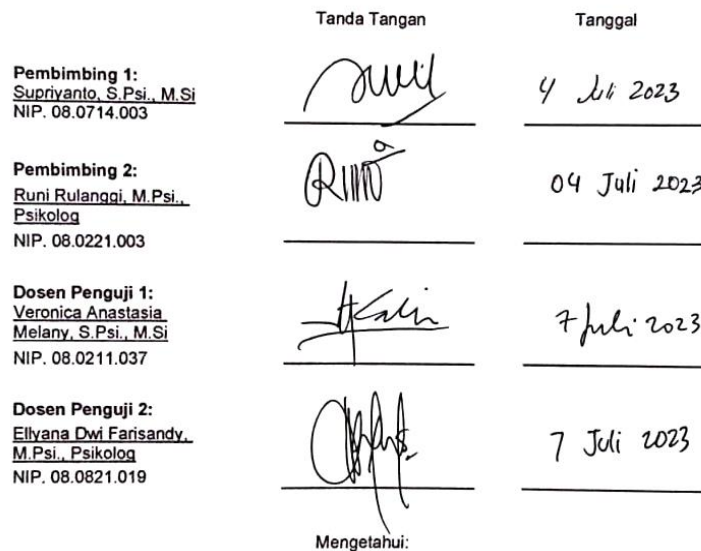 Tanda Tangan Tanggal
Pembimbing 1:
Supriyanto, S.Psi., M.Si
NIP. 08.0714.003
4 Juli 2023
Pembimbing 2:
Runi Rulanggi, M.Psi.,
Psikolog
NIP. 08.0221.003
04 Juli 2023
Dosen Penguji 1:
Veronica Anastasia
Melany, S.Psi., M.Si
NIP. 08.0211.037
7 Juli 2023
Dosen Penguji 2:
Ellyana Dwi Farisandy,
M.Psi., Psikolog
NIP. 08.0821.019
7 Juli 2023
Mengetahui: